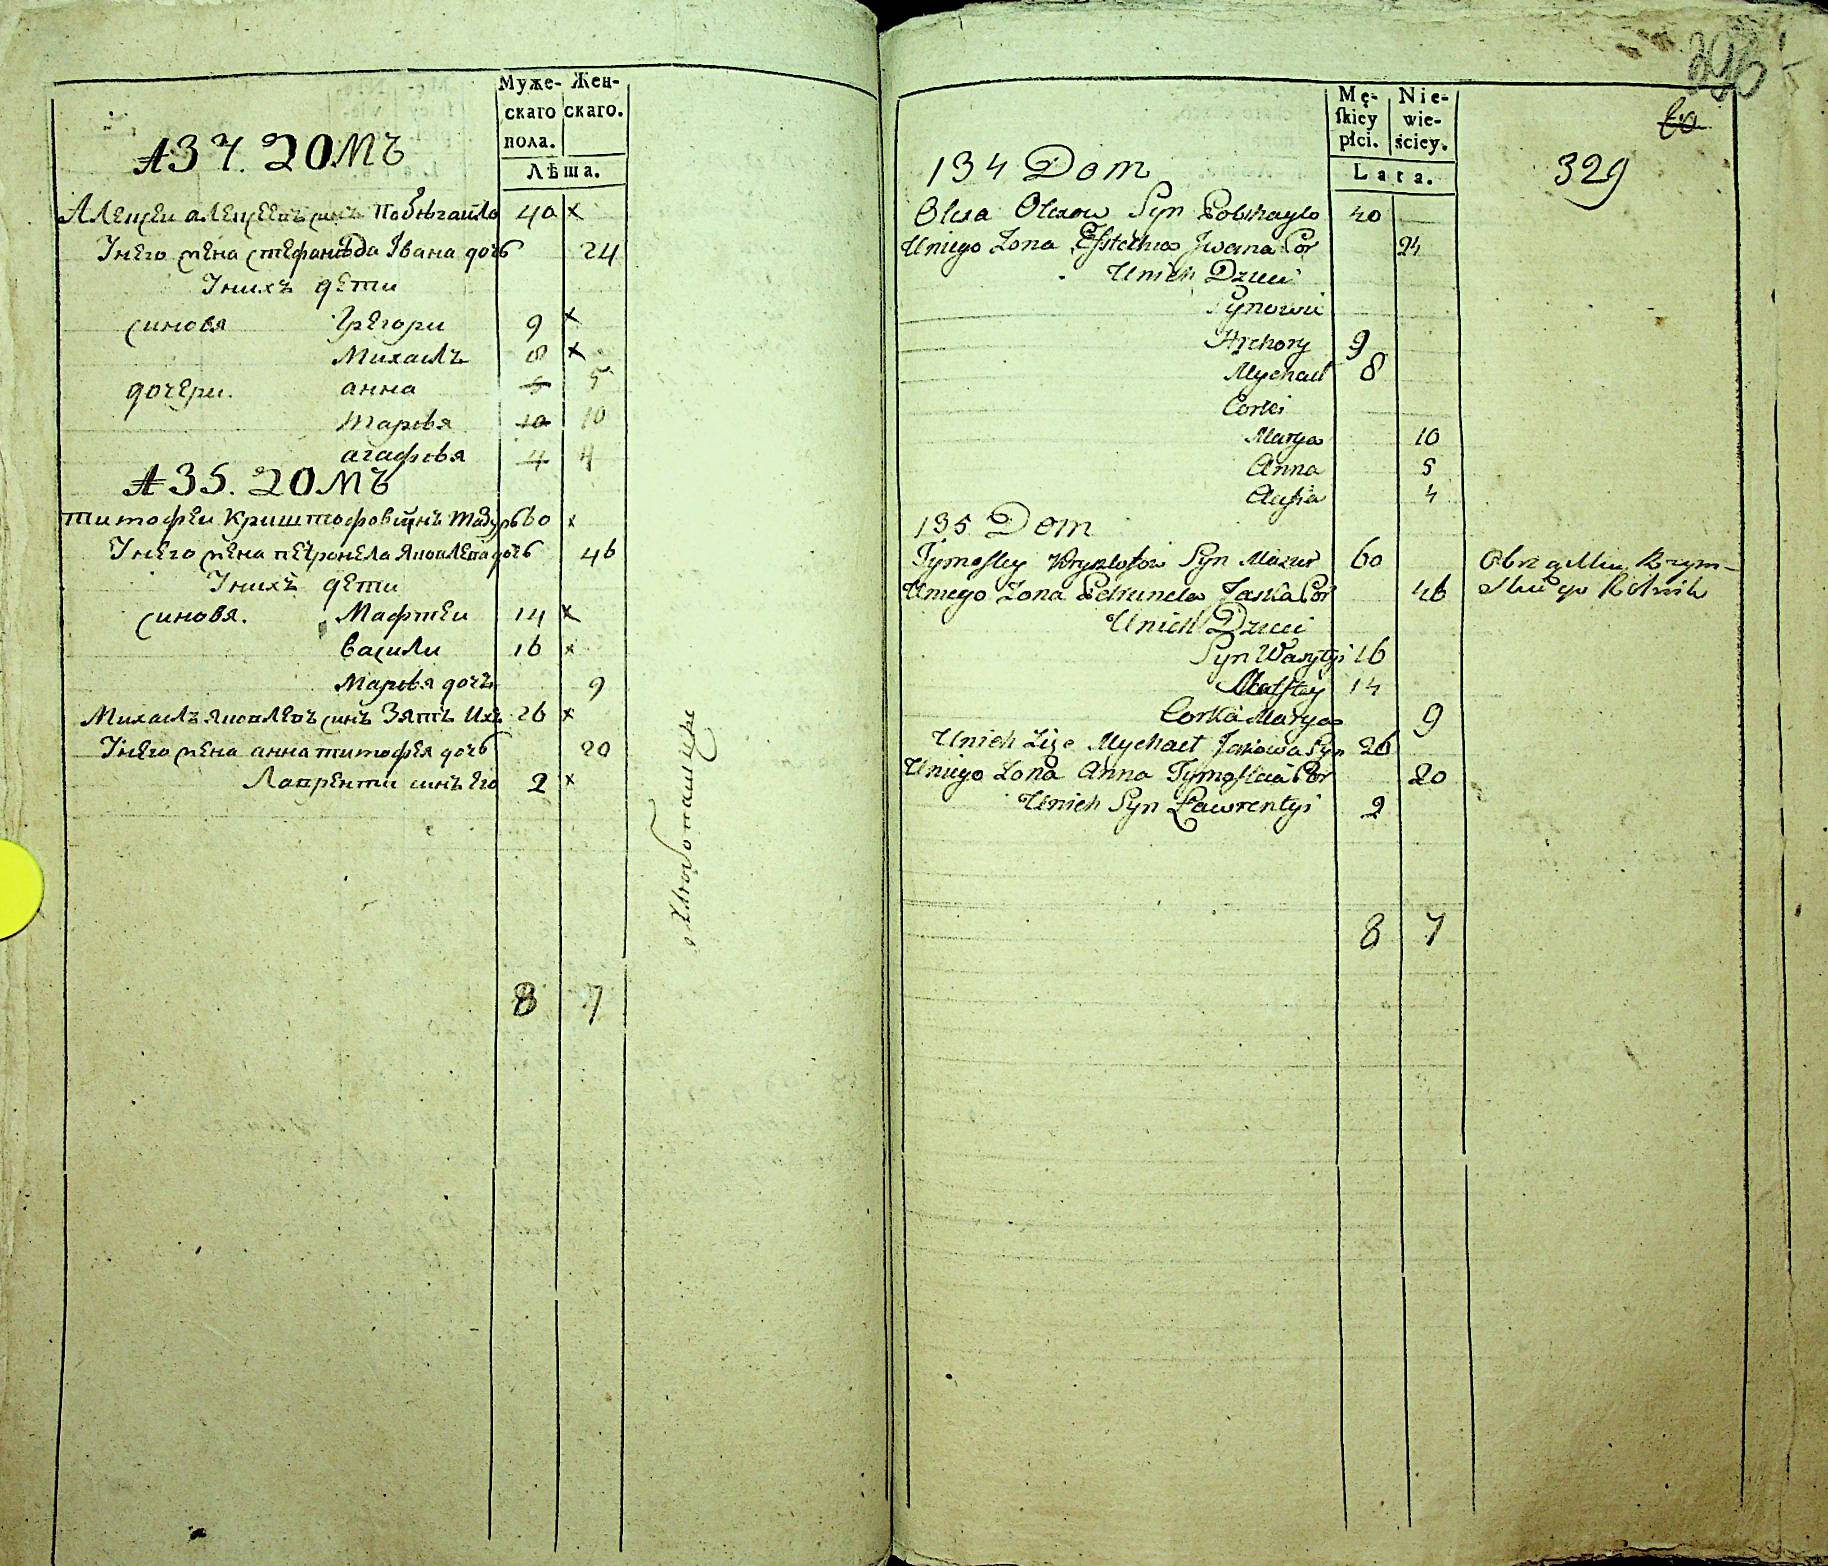 Муже- Жен-
скаго скаго.
пола.
Лѣта.
134. ДОМЪ
Алецеи алецеевъ синъ Побѣгаило 40 x
Унего жена стефанѣда Ивана дочь 24
Унихъ дети
синовя Григори 9 x
Михаилъ 8 x
дочери. анна 5 5
Марѣя 10 10
агафѣя 4 4
135. ДОМЪ
титофеи Криштофовъ синъ Мазуръ 60 x
Унего жена петронела яковлева дочь 46
Унихъ дети
синовя. Мафтеи 14 x
Васили 16 x
Марѣя дочь 9
Михаилъ яковлевъ синъ Зять ихъ 26 x
Унего жена анна титофея дочь 20
Лаврентии синъ его 2 x
8 7
Mę- Nie-
skiey wie-
płci. ściey.
Lata.
329
134 Dom
Olexa Olexow Syn Pobihaylo 40
Uniego Zona Esstechia Jwana Cor 24
Unich Dzieci
Synowie
Hrehory 9
Mychael 8
Corki
Marya 10
Anna 5
4
135 Dom
Tymofiey Krysztofow Syn Mazur 60
Uniego Zona Petrunela Jaska Cor 46
Unich Dzieci
Syn Wasylyi 16
Maftey 14
Corka Marya 9
Unich Zięc Mychael Jakowa Syn 26
Uniego Zona Anna Tymofieia Cor 20
Unich Syn Ławrentyi 2
8 7